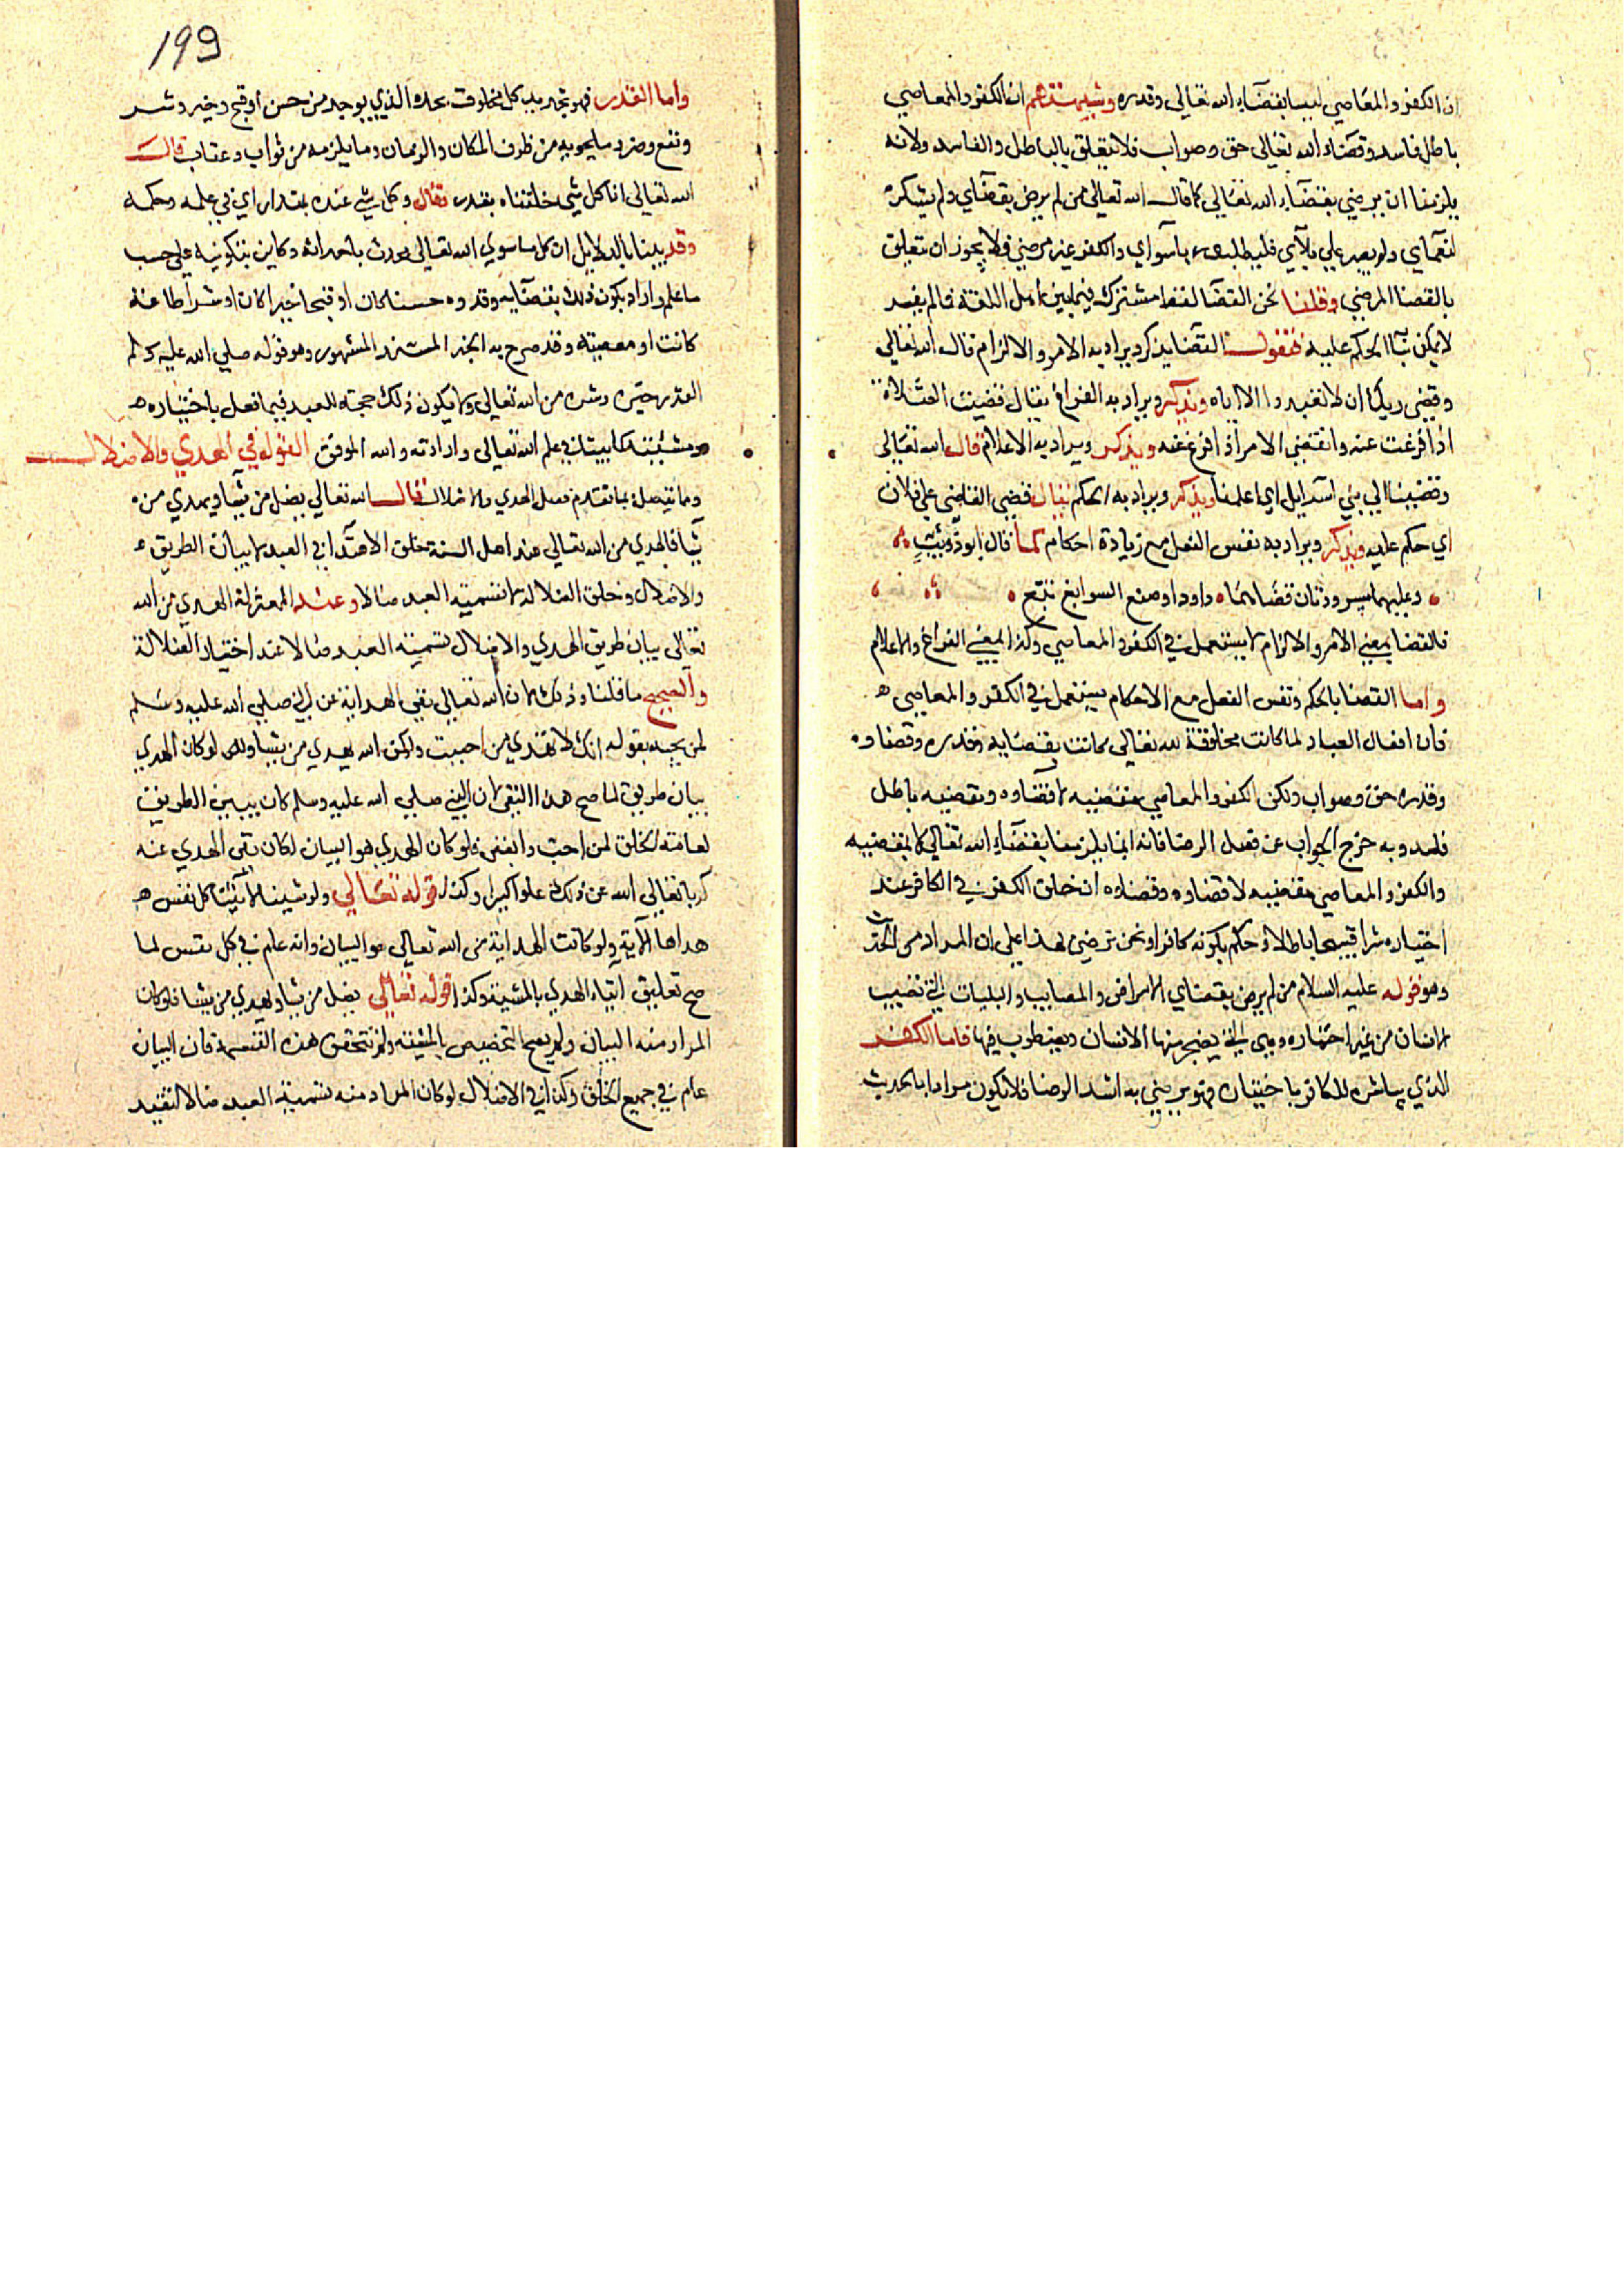 ان الكفر والمعاصي ليسا بقضاء الله تعالى وقدره وشبهتهم ان الكفر والمعاصي
باطل فاسد وقضاء الله تعالى حق وصواب فلا يتعلق بالباطل والفاسد ولانه
يلزمنا ان نرضي بقضاء الله تعالى كما قال الله تعالى من لم يرض بقضآي ولم يشكر
لنعمآي ولم يصبر علي بلآي فليطلب ربا سوآي والكفر غير مرضي فلا يجوز ان يتعلق
بالقضا المرضي وقلنا نحن القضا لفظ مشترك فيما بين اهل اللغة فما لم يفسر
لا يمكن بنا الحكم عليه فنقول القضا يذكر ويراد به الامر والالزام قال الله تعالي
وقضي ربك ان لا تعبدوا الا اياه ويذكر ويراد به الفراغ يقال قضيت الصلاة
اذا فرغت عنه وانقضي الامر اذا فرغ عنه ويذكر ويراد به الاعلام قال الله تعالى
وقضينا الي بني اسرايل اي اعلمنا ويذكر ويراد به الحكم يقال قضي القاضي علي فلان
اي حكم عليه ويذكر ويراد به نفس الفعل مع زيادة احكام كما قال ابو ذويب
وعليهما مسرودتان قضاهما داود او صنع السوابغ تبع
فالقضا بمعني الامر والالزام لا يستعمل في الكفر والمعاصي وكذا بمعني الفراغ والاعلام
واما القضا بالحكم ونفس الفعل مع الاحكام يستعمل في الكفر والمعاصي
فان افعال العباد لما كانت مخلوقة لله تعالي كانت بقضايه وقدره وقضاوه
وقدره حق وصواب ولكن الكفر والمعاصي مقضيه لا قضاوه ومقضيه باطل
فاسد وبه خرج الجواب عن فصل الرضا فانه انما يلزمنا بقضاء الله تعالي لا بمقضيه
والكفر والمعاصي مقضيه لا قضاوه وقضاوه ان خلق الكفر في الكافر عند
اختياره شرا قبيحا باطلا وحكم بكونه كافرا ونحن نرضي لهذا علي ان المراد من الحديث
وهو قوله عليه السلام من لم يرض بقضاي الامراض والمصايب والبليات التي تصيب
الانسان من غير اختياره وهي التي يضجر منها الانسان ويضطرب فيها فاما الكفر
الذي يباشره الكافر باختياره فهو يرضي به اشد الرضا فلا يكون مرادا بالحديث
199
واما القدر فهو تحديد كل مخلوق بحده الذي يوجد من حسن او قبح وخير وشر
ونفع وضر وما يحويه من ظرف المكان والزمان وما يلزمه من ثواب وعقاب قال
الله تعالي انا كل شي خلقناه بقدر وقال وكل شي عنده بمقدار اي في علمه وحكمه
وقد بينا بالدلايل ان كل ما سوي الله تعالى محدث باحداثه وكاين بتكوينه علي حسب
ما علم واراد يكون ذلك بقضايه وقدره حسنا كان او قبيحا خيرا كان او شرا طاعة
كانت او معصية وقد صرح به الخبر المشهور وهو قوله صلي الله عليه وسلم
القدر خيره وشره من الله تعالي ولا يكون ذلك حجة للعبد فيما فعل باختياره
ومشيئته كما بينا في علم الله تعالى وارادته والله الموفق القول في الهدي والاضلال
ومما يتصل بما تقدم فصل الهدي والاضلال قال الله تعالي يضل من يشا ويهدي من
يشا فالهدي من الله تعالي عند اهل السنة خلق الاهتدا في العبد لا بيان الطريق
والاضلال وخلق الضلالة لا تسمية العبد ضالا وعند المعتزلة الهدي من الله
تعالي بيان طريق الهدي والاضلال تسمية العبد ضالا عند اختيار الضلالة
والصحيح ما قلنا وذلك لان الله تعالي نفي الهداية عن النبي صلي الله عليه وسلم
لمن يحبه بقوله انك لا تهدي من احببت ولكن الله يهدي من يشا ولو كان الهدي
بيان طريق لما صح هذا النفي لان النبي صلي الله عليه وسلم كان يبين الطريق
لعامة الخلق لمن احب وابغض فلو كان الهدي هو البيان لكان نفي الهدي عنه
كذبا تعالي الله عن ذلك علوا كبيرا وكذا قوله تعالي ولو شينا لآتينا كل نفس
هداها الآية ولو كانت الهداية من الله تعالي هو البيان وانه عام في كل نفس لما
صح تعليق ايتاء الهدي بالمشية وكذا قوله تعالي يضل من يشا ويهدي من يشا فلو كان
المراد منه البيان ولم يصح التخصيص بالمشية ولم تتحقق هذه القسمة فان البيان
عام في جميع الخلق وكذا في الاضلال لو كان المراد منه تسمية العبد ضالا لتقيد